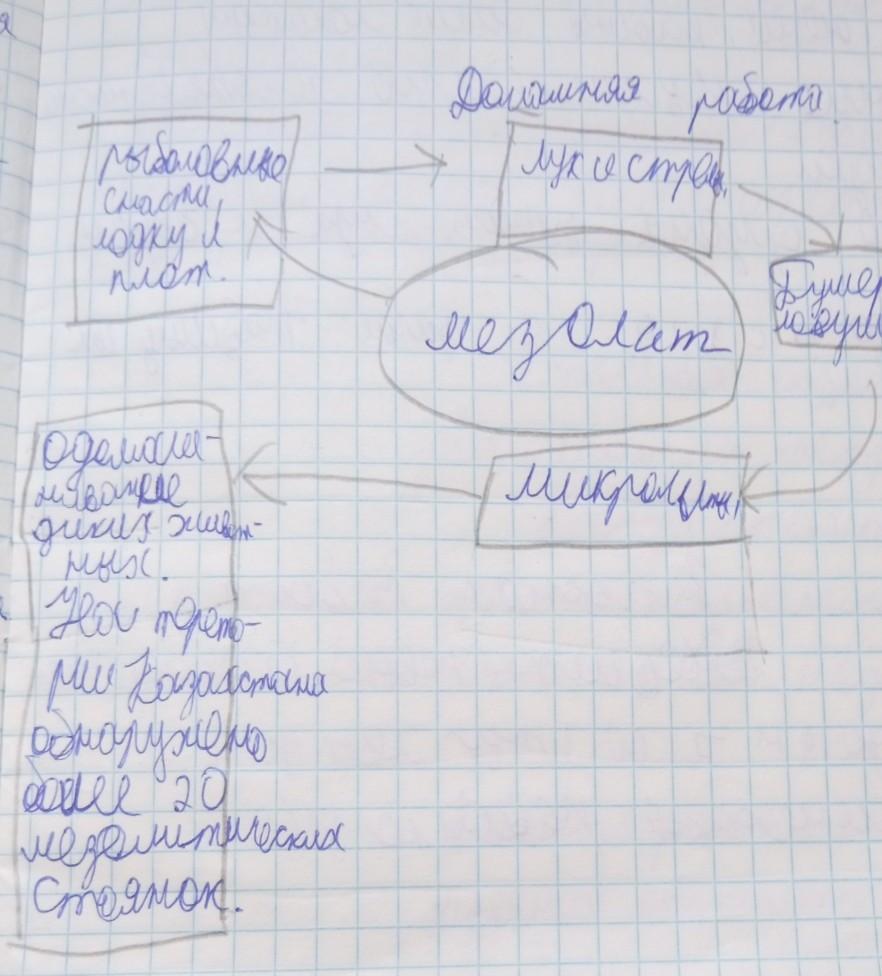 Домашняя работа
рыболовные
снасти,
лодку и
плот.
лук и стрелы,
Бумер
мезолат
микролиты,
одомаш-
нивание
диких живот-
ных.
На терето-
рии Казахстана
обнаружено
более 20
мезолитических
стоянок.